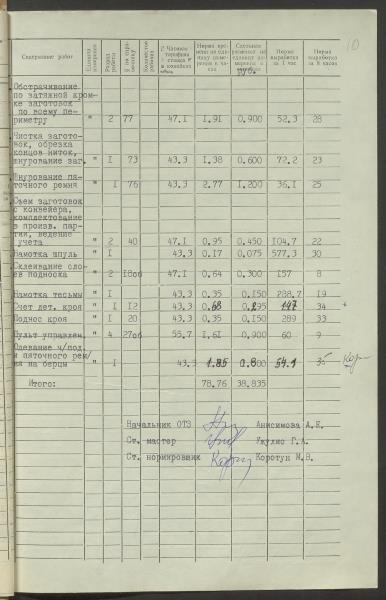 10
Содержание работ
Единица измерения
Разряд работы
Количество рабочих
Часовая тарифная ставка в копейках
Норма времени на единицу измерения в часах
Норма выработки за 1 час
Норма выработки за 8 часов
руб.
Обстрачивание
по затяжной кром-
ке заготовок
по всему пе-
риметру " 2 77 47.1 1.91 0,900 52.3 28
Чистка загото-
вок, обрезка
концов ниток,
шнурование заг. " 1 73 43.3 1.38 0.600 72.2 23
Шнурování пя-
точного ремня " 1 76 43.3 2.77 1.200 36.1 25
Съем заготовок
с конвейера,
комплектование
в произв. пар-
тии, ведение
учета " 2 40 47.1 0.95 0.450 104.7 22
Намотка шпуль " 1 43.3 0.17 0.075 577.3 30
Склеивание сло-
ев подноска " 2 180б 47.1 0.64 0.300 157 8
Намотка тесьмы " 1 43.3 0.35 0.150 288.7 19
Счет дет. кроя " 1 112 43.3 147 34 +
Поднос кроя 1 20 43.3 0.35 0.150 289 33
Пульт управлен. " 4 270б 55.7 1.61 0.900 60 9
Одевание ч/под.
и пяточного рем/
ня на берцы " 1 43.3 1.85 0.8 54.1 35
Итого: 78.76 38.835
Начальник ОТЗ Анисимова А.Е.
Ст. мастер Ужулис Г.А.
Ст. нормировщик Коротун М.В.